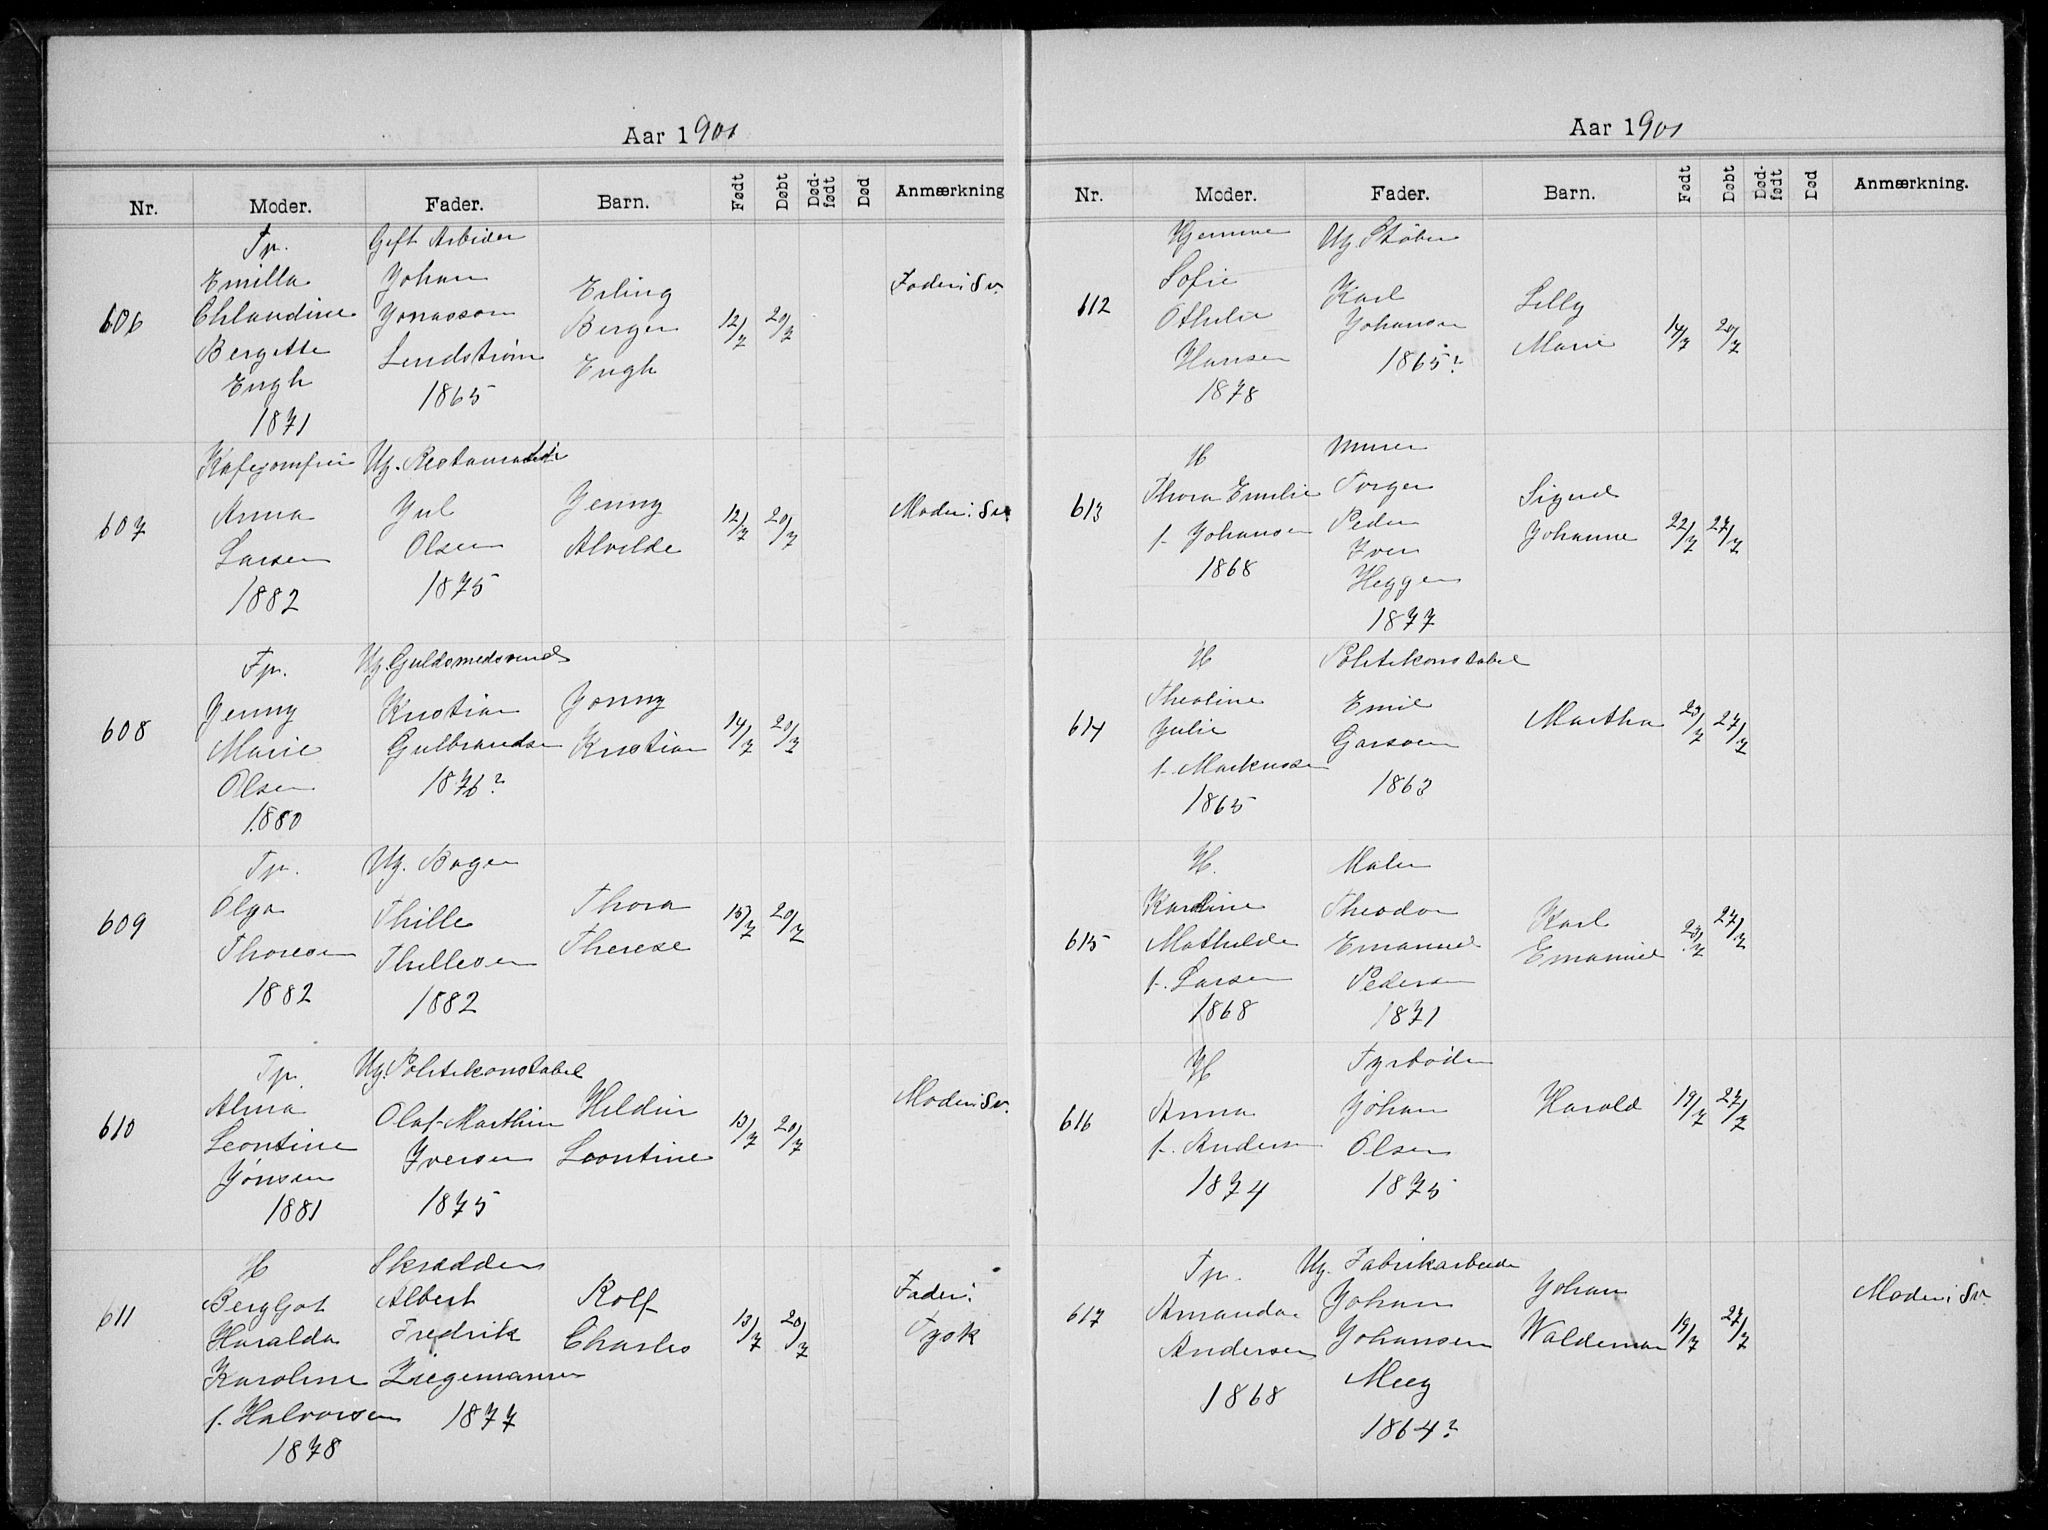 Aar 1901
Nr. Moder. Fader. Barn. Født Døbt Død-født Død Anmærkning
606
Tp.
Emilla
Chlaudine
Bergette
Engh
1871
Gift Arbider
Johan
Jonasson
Lindstrøm
1865
Erling
Berger
Engh
12/7 20/7
Fader i Sv.
607
Kafejomfru
Anna
Larsen
1882
Ug.
Jul
Olsen
1875
Jenny
Alvilde
12/7 20/7
Moder i Sv.
608
Tp.
Jenny
Marie
Olsen
1880
Ug. Guldsmedsvend
Kristian
Gulbrandsen
1876?
Jonny
Kristian
14/7 20/7
609
Tp.
Olga
Thoresen
1882
Ug. Bager
Thille
Thillesen
1882
Thora
Therese
15/7 20/7
610
Tp.
Alma
Leontine
Jønsen
1881
Ug. Politikonstabel
Olaf Marthin
Iversen
1875
Hildur
Leontine
13/7 20/7
Moder i Sv.
611
H
Bergljot
Haralda
Karoline
f. Halvorsen
1878
Skrædder
Albert
Fredrik
Ziegemann
1877
Rolf
Charles
13/7 20/7
Fader i
Tysk
Aar 1901
Nr. Moder. Fader. Barn. Født Døbt Død-født Død Anmærkning.
612
Hjemme
Sofie
Othilie
Hansen
1878
Ug. Støber
Karl
Johansen
1865?
Lilly
Marie
14/7 20/7
613
H
Thora Emilie
f. Johansen
1868
Murer
Torger
Peder
Iver
Heggen
1877
Sigrid
Johanne
22/7 27/7
614
H
Theoline
Julie
f. Markussen
1865
Politikonstabel
Emil
1863
Martha
23/7 27/7
615
H.
Karoline
Mathilde
f. Larsen
1868
Maler
Theodor
Emanuel
Pedersen
1871
Karl
Emanuel
23/7 27/7
616
H
Anna
f. Andersen
1874
Fyrbøder
Johan
Olsen
1875
Harald
19/7 27/7
617
Tp.
Amanda
Andersen
1868
Ug. Fabrikarbeider
Johan
Johansen
Meey
1864?
Johan
Waldemar
19/7 27/7
Moder i Sv.